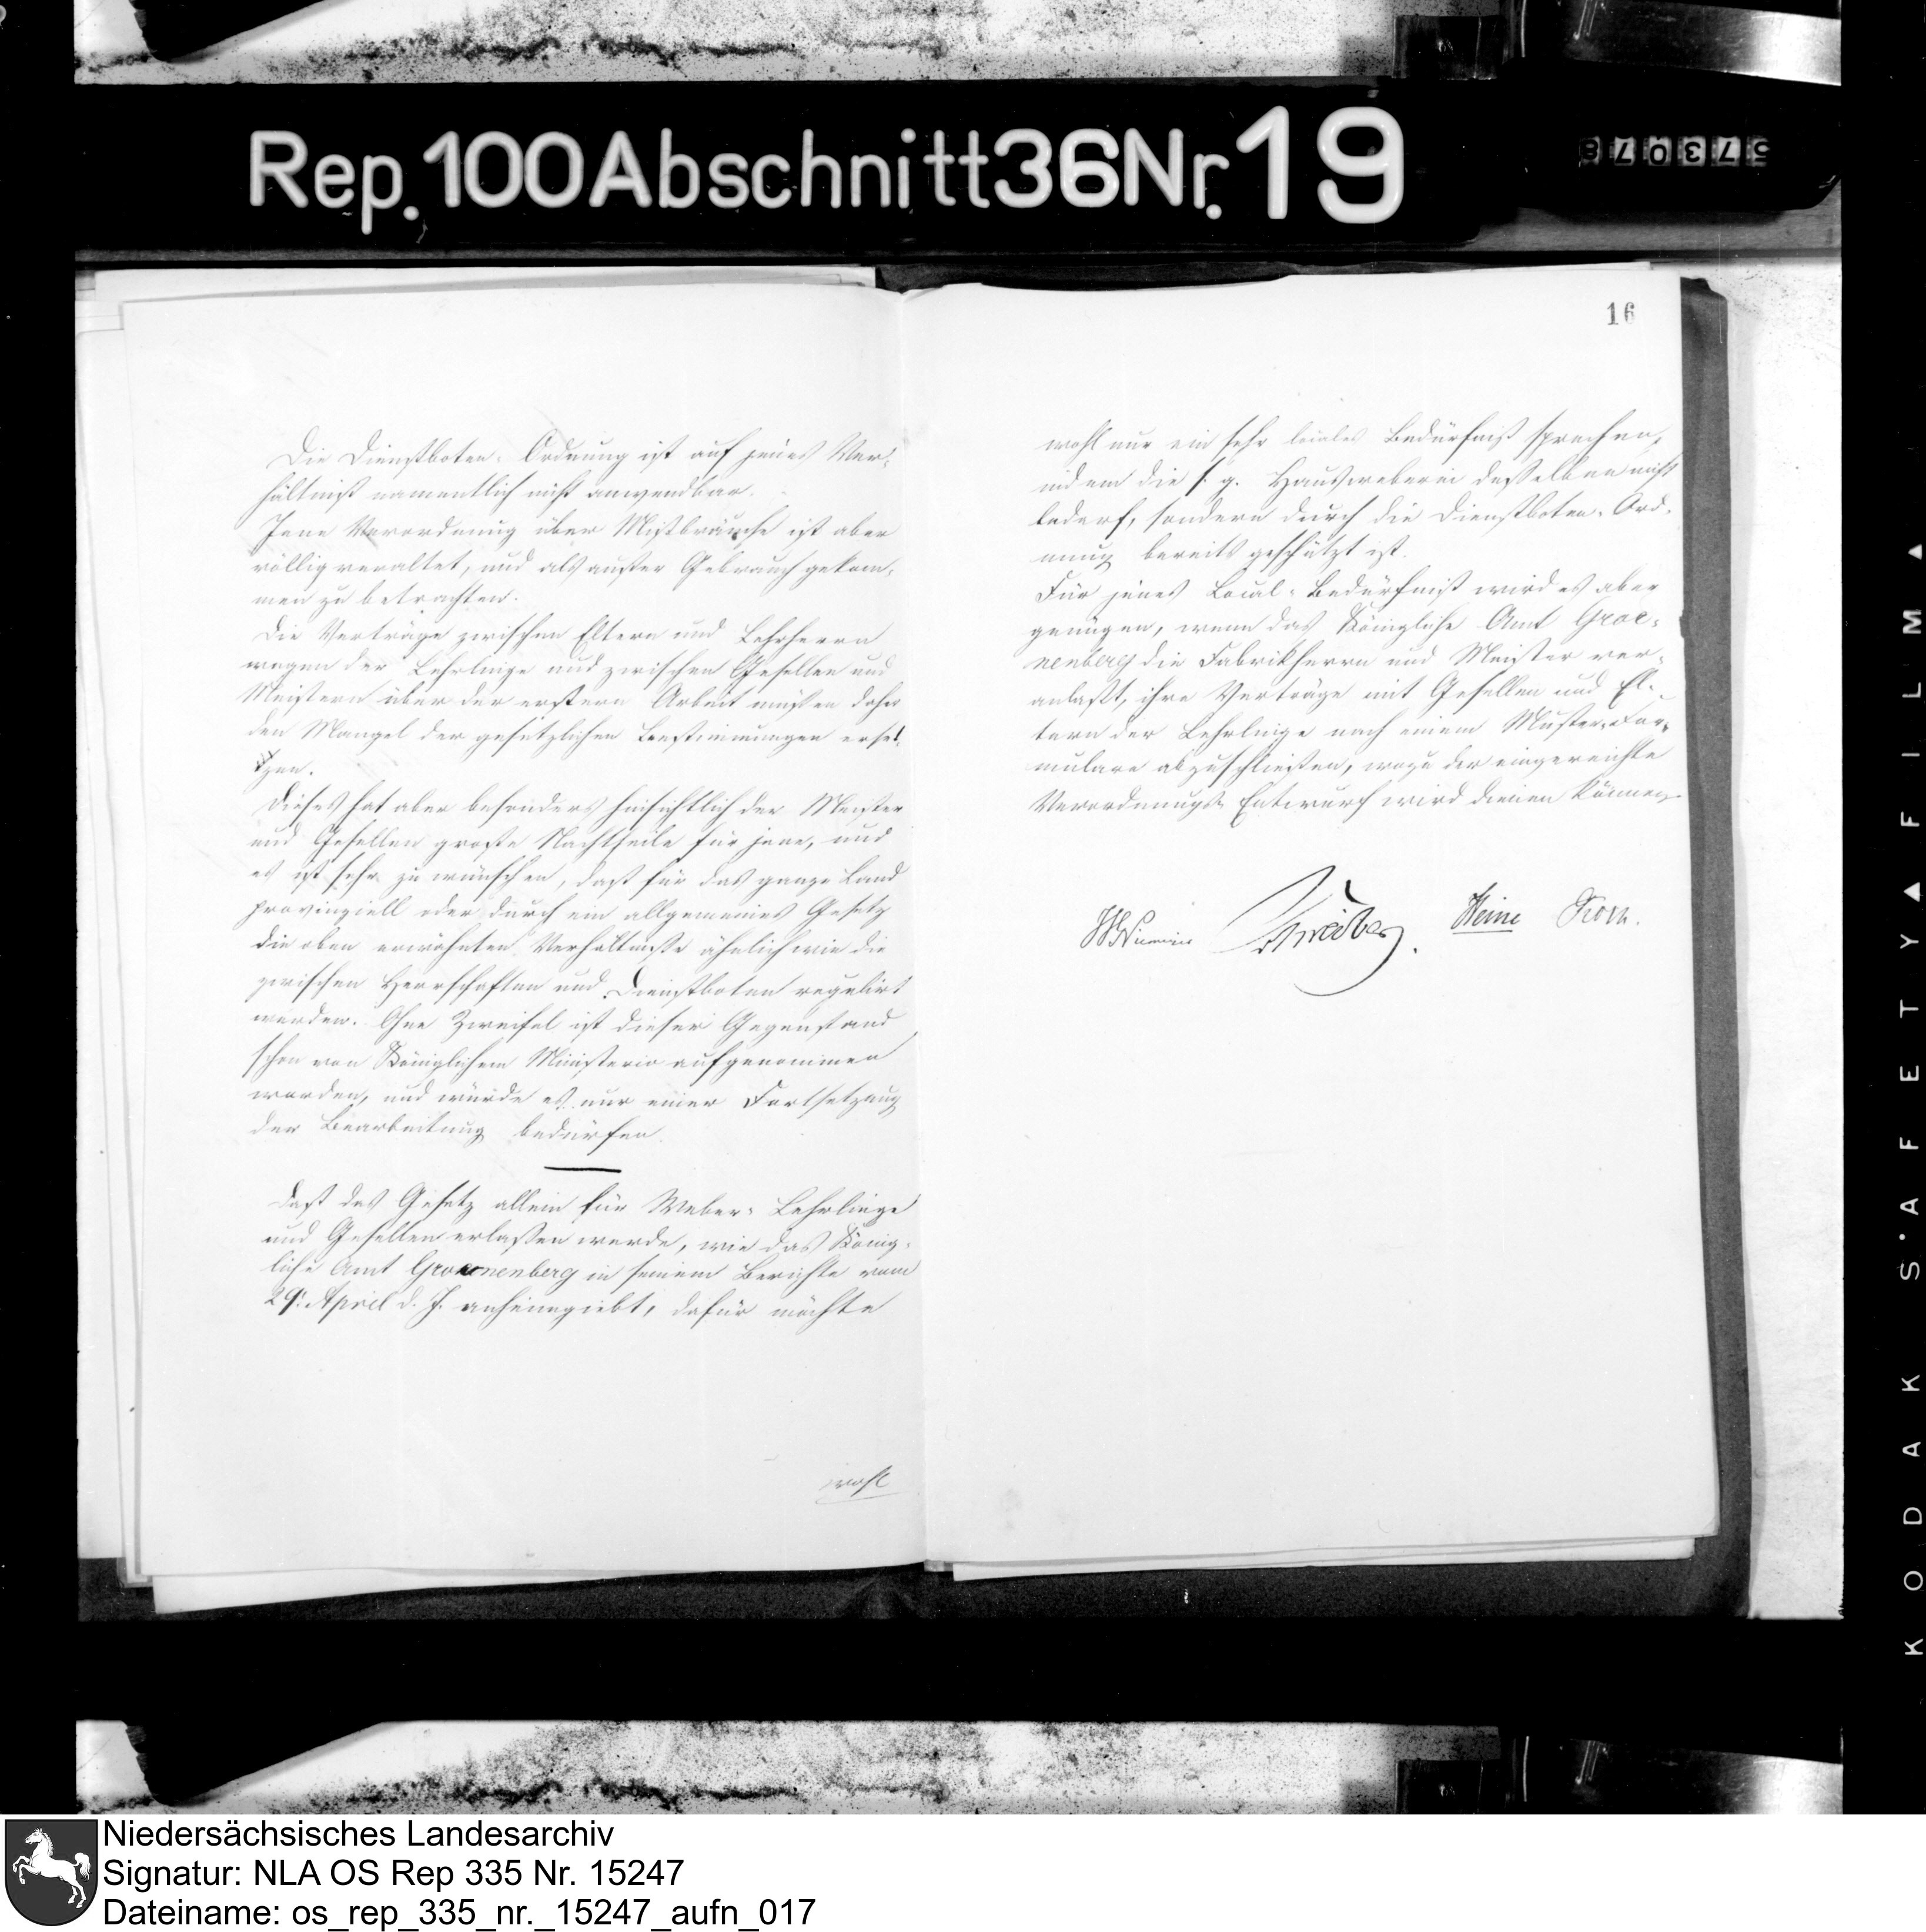 Rep. 100 Abschnitt 36 Nr. 19
573078
Die Dienstboten-Ordnung ist auf jenes Ver-
hältniß namentlich nicht anwendbar.
Jene Verordnung über Mißbräuche ist aber
völlig veraltet, und als außer Gebrauch gekom-
men zu betrachten.
Die Verträge zwischen Eltern und Lehrherrn
wegen der Lehrlinge und zwischen Gesellen und
Meistern über der erstern Arbeit müßen daher
den Mangel der gesetzlichen Bestimmungen erset-
tzen.
Dieses hat aber besonders hinsichtlich der Meister
und Gesellen große Nachtheile für jene, und
es ist sehr zu wünschen, daß für das ganze Land
provinziell oder durch ein allgemeines Gesetz
die oben erwähnten Verhältniße ähnlich wie die
zwischen Herrschaften und Dienstboten regulirt
werden. Ohne Zweifel ist dieser Gegenstand
schon von Königlichem Ministerio aufgenommen
worden, und würde es nur einer Fortsetzung
der Bearbeitung bedürfen.
Daß das Gesetz allein für Weber-Lehrlinge
und Gesellen erlaßen werde, wie das König-
liche Amt Groenenberg in seinem Berichte vom
29. April d. J. anheimgiebt, dafür möchte
wohl
16
wohl nur ein sehr locales Bedürfniß sprechen,
indem die s. g. Hausweberei desselben nicht
bedarf, sondern durch die Dienstboten-Ord-
nung bereits geschützt ist.
Für jenes Local-Bedürfniß wird es aber
genügen, wenn das Königliche Amt Groe-
nenberg die Fabrikherrn und Meister ver-
anlaßt, ihre Verträge mit Gesellen und El-
tern der Lehrlinge nach einem Muster-For-
mulare abzuschließen, wozu der eingereichte
Verordnungs-Entwurf wird dienen können.
Heine
KODAK SAFETY FILM
Niedersächsisches Landesarchiv
Signatur: NLA OS Rep 335 Nr. 15247
Dateiname: os_rep_335_nr._15247_aufn_017